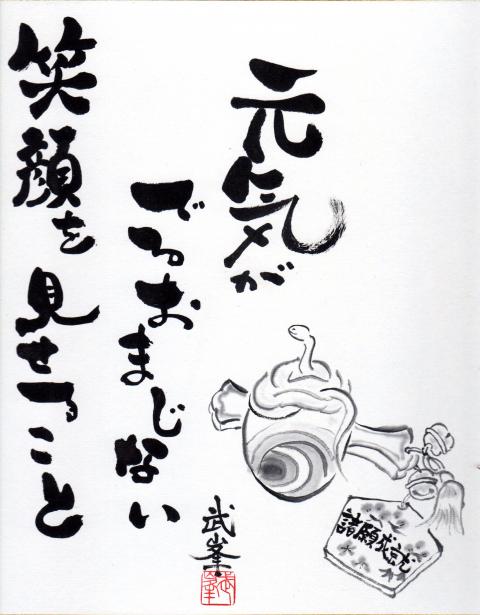 元気が
でるおまじない
笑顔を見せること
武峯
諸願成就